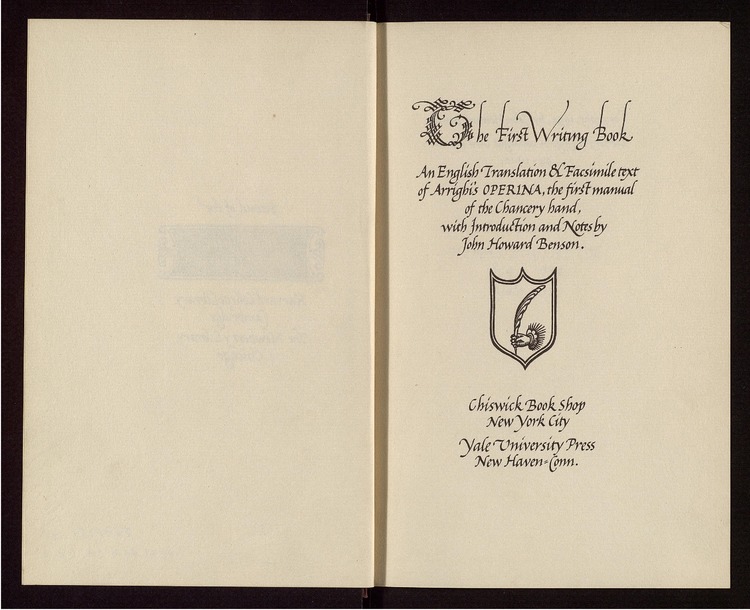 The First Writing Book
An English Translation & Facsimile text
of Arrighi's OPERINA, the first manual
of the Chancery hand,
with Introduction and Notes by
John Howard Benson.
Chiswick Book Shop
New York City
Yale University Press
New Haven-Conn.